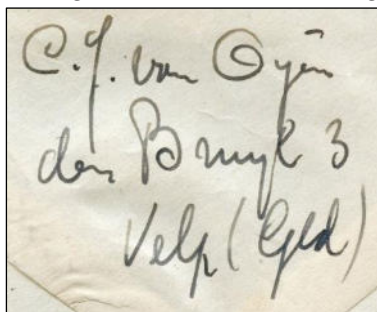 C.J. van Oyen
den Bruyl 3
Velp (Gld)